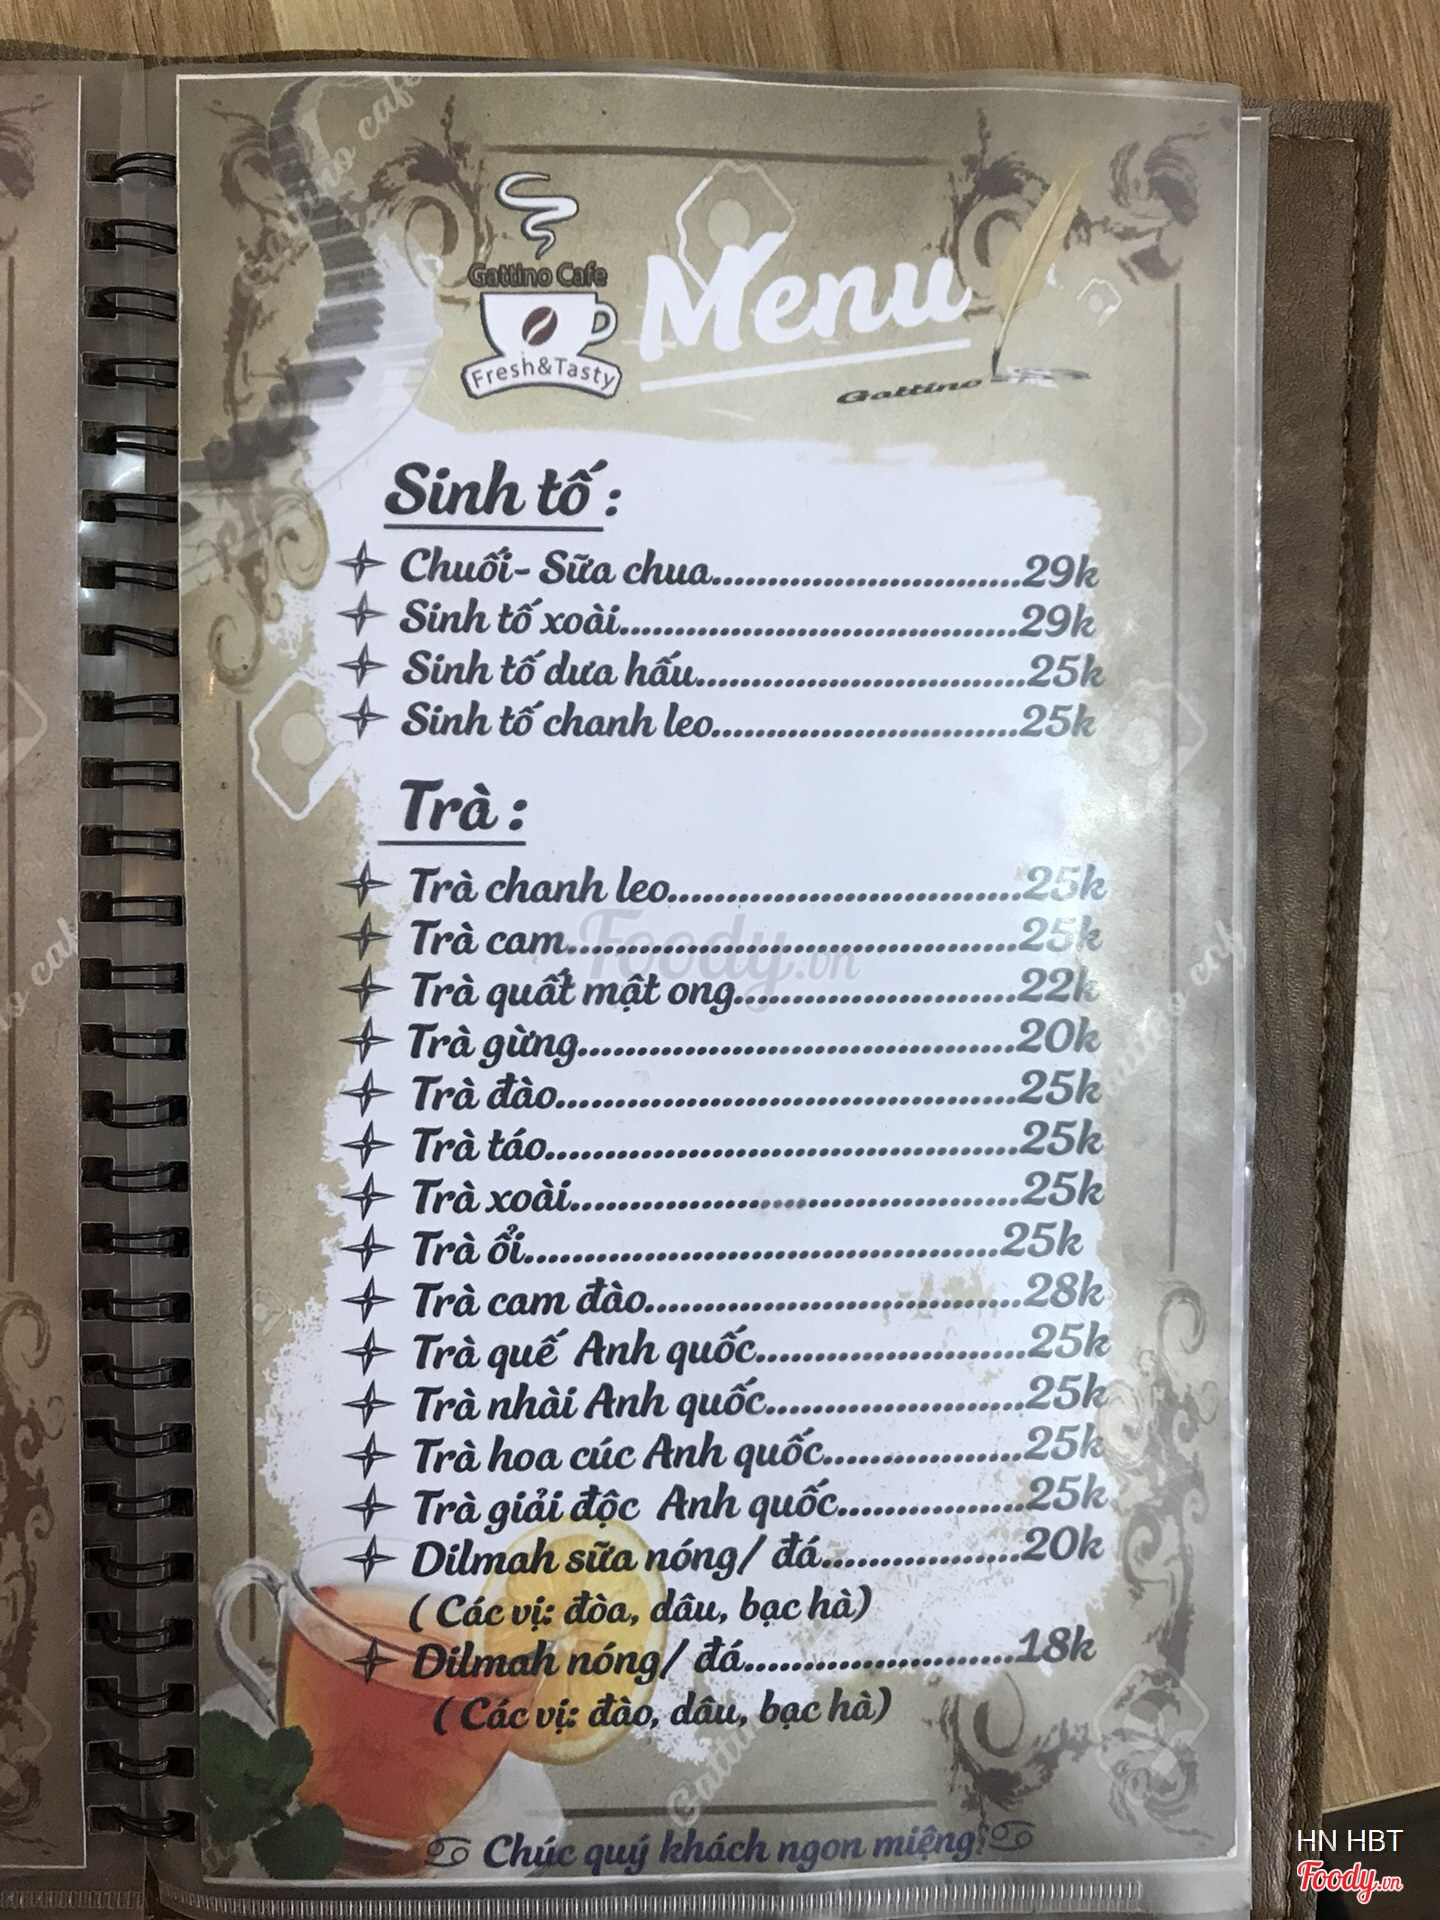 Gattino Cafe
Fresh&Tasty
Menu
Gattino
Sinh tố :
Chuối- Sữa chua............................29k
Sinh tố xoài....................................29k
Sinh tố dưa hấu..............................25k
Sinh tố chanh leo............................25k
Trà :
Trà chanh leo................................25k
Trà cam.........................................25k
Trà quất mật ong.........................22k
Trà gừng.......................................20k
Trà đào.........................................25k
Trà táo..........................................25k
Trà xoài........................................25k
Trà ổi...........................................25k
Trà cam đào..................................28k
Trà quế Anh quốc........................25k
Trà nhài Anh quốc.......................25k
Trà hoa cúc Anh quốc..................25k
Trà giải độc Anh quốc.................25k
Dilmah sữa nóng/ đá..................20k
( Các vị: đòa, dâu, bạc hà)
Dilmah nóng/ đá........................18k
( Các vị: đào, dâu, bạc hà)
Chúc quý khách ngon miệng
Foody.vn
HN HBT
Foody.vn